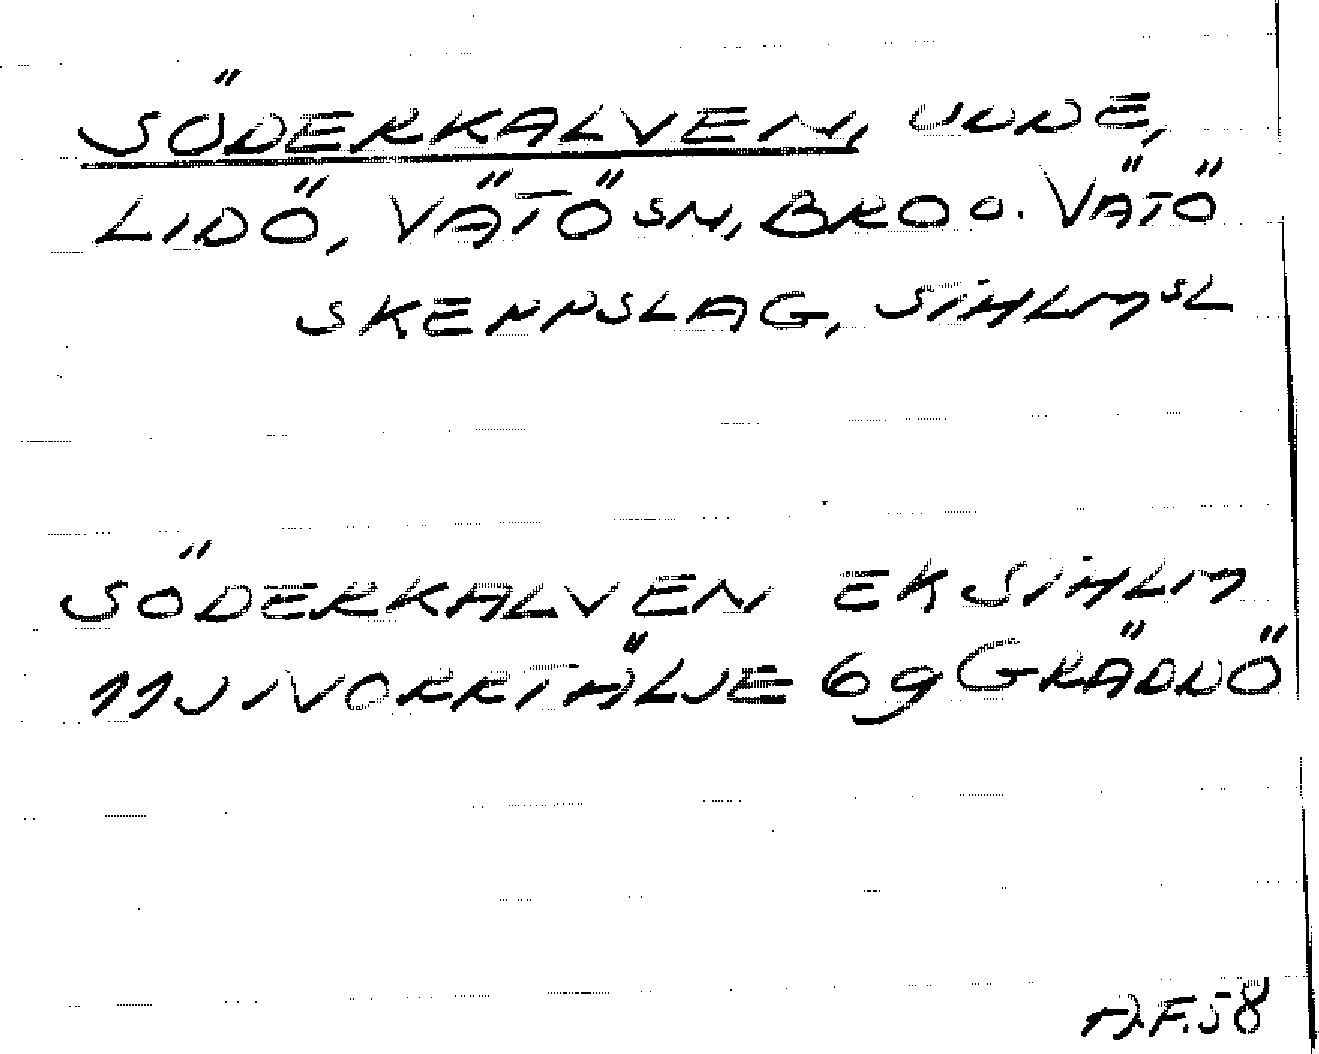 SÖDERKALVEN, UDDE,
LIDÖ, VÄTÖ SN, BRO O. VÄTÖ
SKEPPSLAG, STHLMS L
SÖDERKALVEN EK STHLM
11J NORRTÄLJE 69 GRÄDDÖ
A.F.58